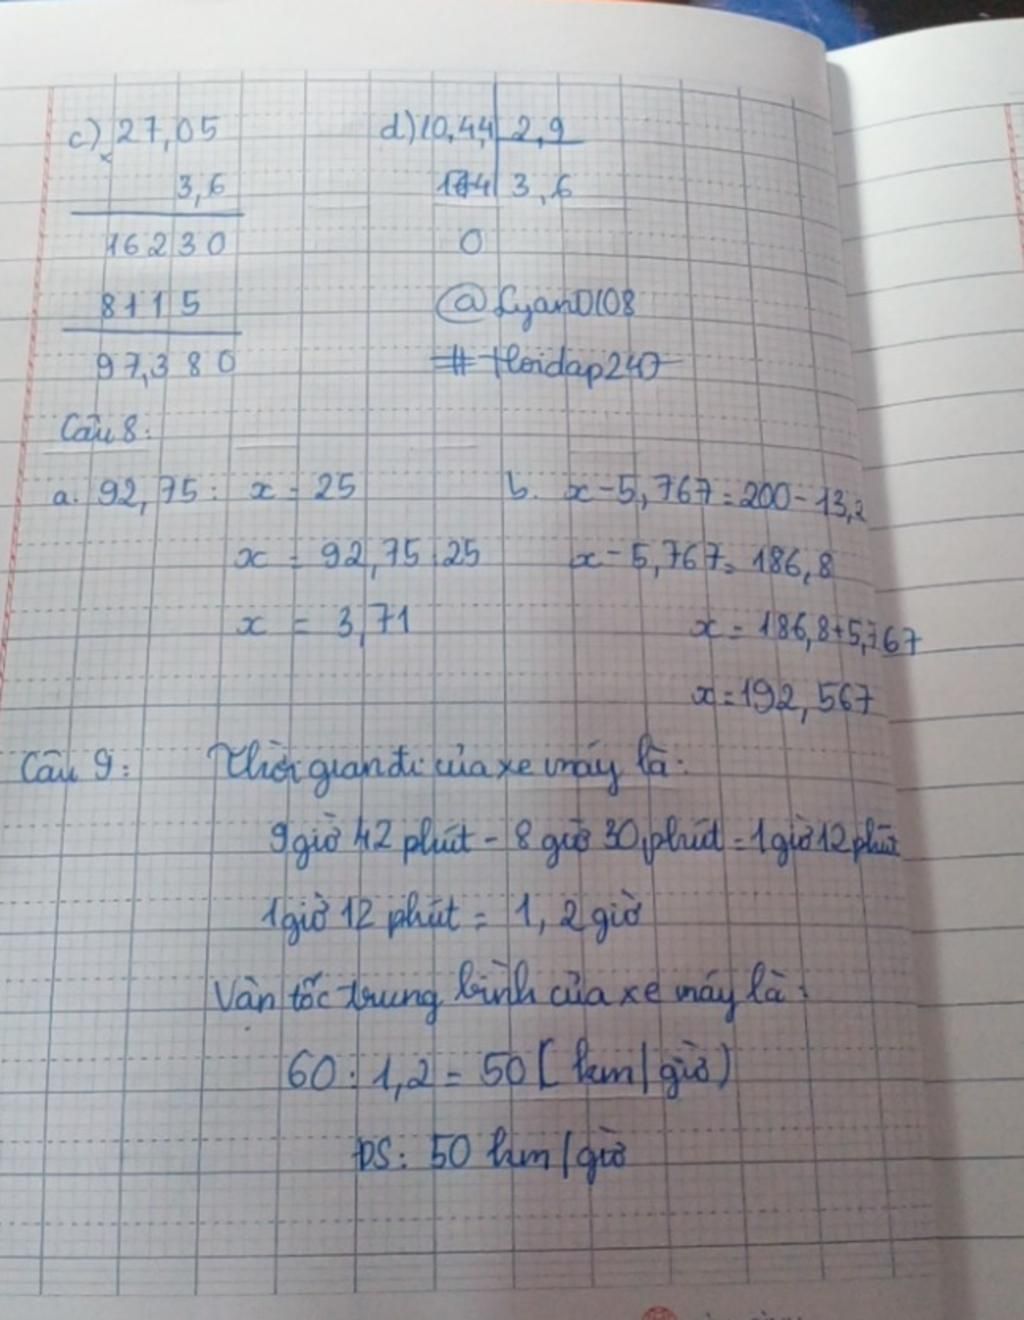 c) 27,05
×
3,6
16230
8115
97,380
d) 10,4,4 2,9
174 3,6
0
@Lyan0108
#Hoidap247
Câu 8:
a. 92,75 : x = 25
x = 92,75 : 25
x = 3,71
b. x - 5,767 = 200 - 13,2
x - 5,767 = 186,8
x = 186,8 + 5,767
x = 192,567
Câu 9: Thời gian đi của xe máy là:
9 giờ 42 phút - 8 giờ 30 phút = 1 giờ 12 phút
1 giờ 12 phút = 1,2 giờ
Vận tốc trung bình của xe máy là:
60 : 1,2 = 50 ( km/giờ)
ĐS: 50 km/giờ